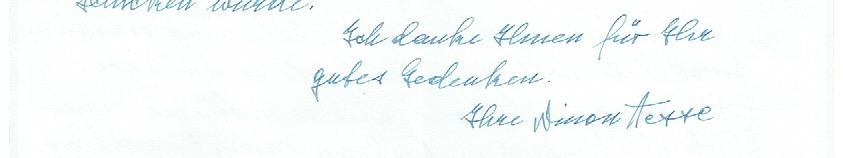 schicken würde.
Ich danke Ihnen für Ihr
gutes Gedenken.
Ihre Ninon Hesse